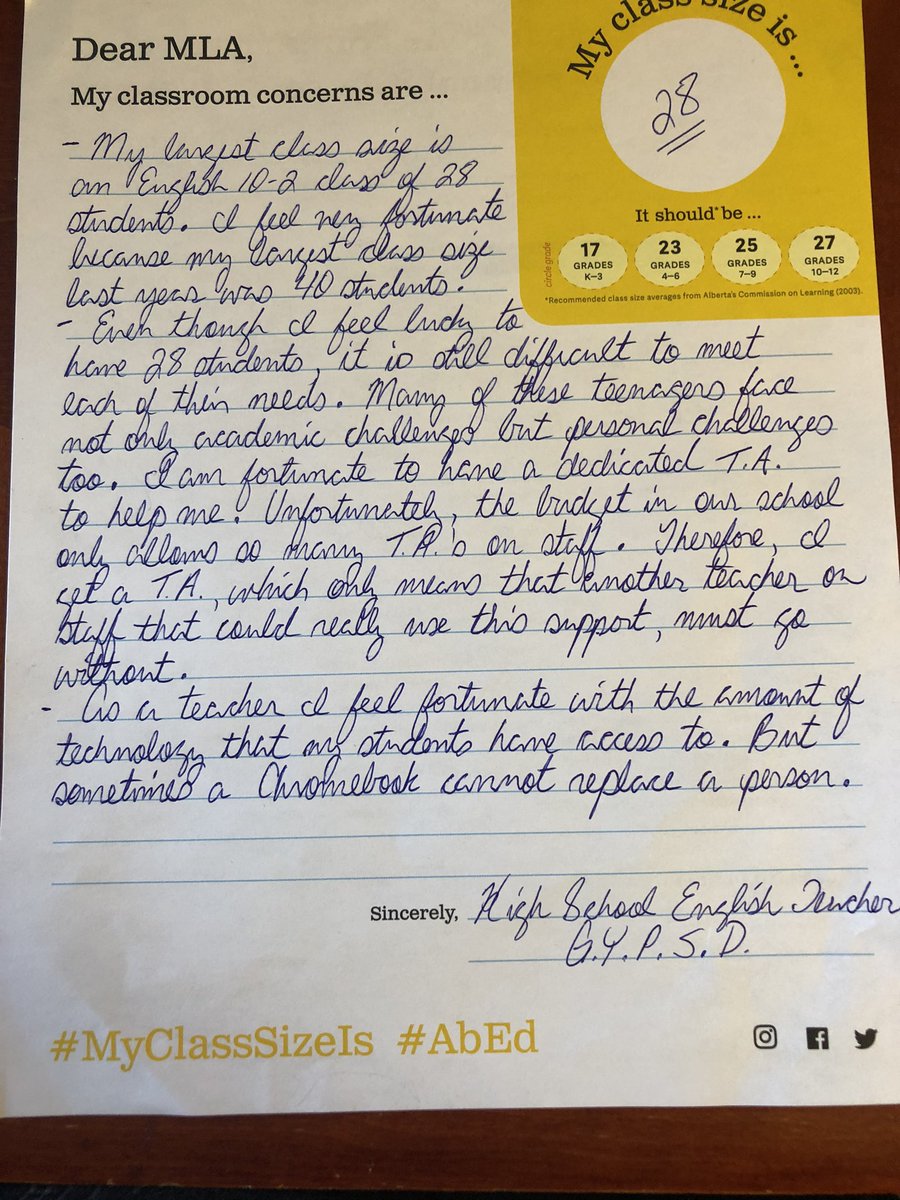 Dear MLA,
My classroom concerns are ...
- My largest class size is
an English 10-2 class of 28
students. I feel very fortunate
because my largest class size
last year was 40 students.
- Even though I feel lucky to
have 28 students, it is still difficult to meet
each of their needs. Many of these teenagers face
not only academic challenges but personal challenges
too. I am fortunate to have a dedicated T.A.
to help me. Unfortunately, the budget in our school
only allows so many T.A.'s on staff. Therefore, I
get a T.A., which only means that another teacher on
staff that could really use this support, must go
without.
- As a teacher I feel fortunate with the amount of
technology that my students have access to. But
sometimes a Chromebook cannot replace a person.
Sincerely, High School English Teacher
G.Y.P.S.D.
My class size is ...
28
It should* be ...
circle grade
17 GRADES K–3
23 GRADES 4–6
25 GRADES 7–9
27 GRADES 10–12
*Recommended class size averages from Alberta's Commission on Learning (2003).
#MyClassSizeIs #AbEd